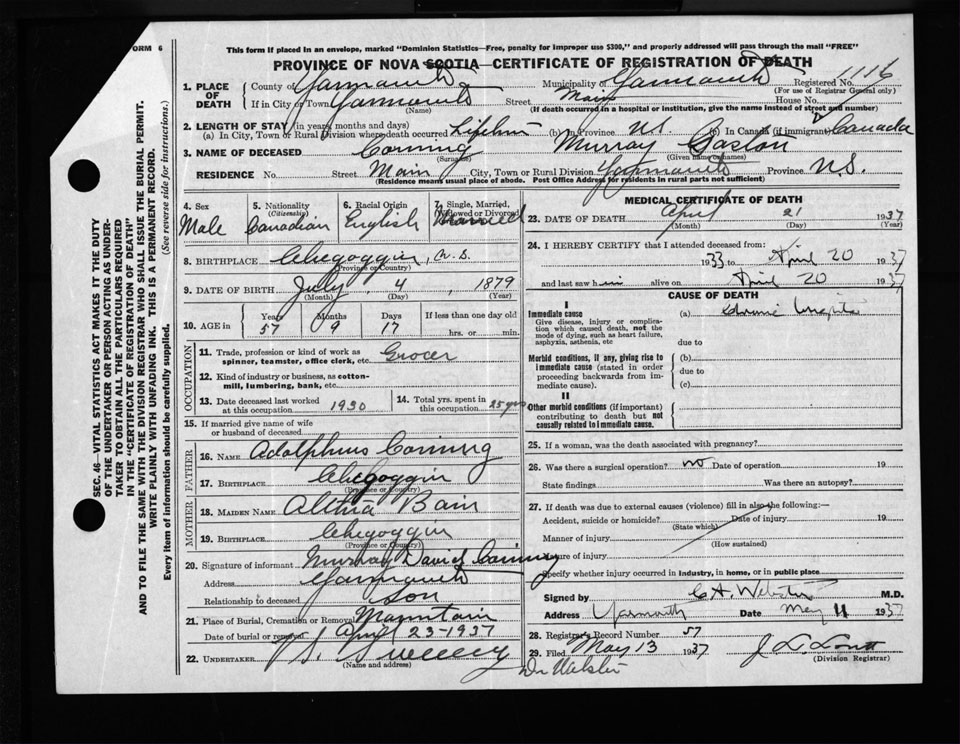 FORM 6
This form if placed in an envelope, marked "Dominion Statistics—Free, penalty for improper use $300," and properly addressed will pass through the mail "FREE"
PROVINCE OF NOVA SCOTIA—CERTIFICATE OF REGISTRATION OF DEATH
1. PLACE OF DEATH
County of Yarmouth Municipality of Yarmouth Registered No. 1116
(For use of Registrar General only)
If in City or Town Yarmouth Street Main House No.
(Name) (If death occurred in a hospital or institution, give the name instead of street and number)
2. LENGTH OF STAY (in years, months and days)
(a) In City, Town or Rural Division where death occurred Lifetime (b) In Province N.S. (c) In Canada (if immigrant) Canada
3. NAME OF DECEASED Corning Murray Gaston
(Surname) (Given name or names)
RESIDENCE No. Street Main City, Town or Rural Division Yarmouth Province N.S.
(Residence means usual place of abode. Post Office Address for residents in rural parts not sufficient)
4. Sex Male
5. Nationality (Citizenship) Canadian
6. Racial Origin English
7. Single, Married, Widowed or Divorced Married
8. BIRTHPLACE Chegoggin, N.S.
(Province or Country)
9. DATE OF BIRTH July 4, 1879
(Month) (Day) (Year)
10. AGE in Years 57 Months 9 Days 17 If less than one day old hrs. or min.
OCCUPATION
11. Trade, profession or kind of work as spinner, teamster, office clerk, etc. Grocer
12. Kind of industry or business, as cotton-mill, lumbering, bank, etc.
13. Date deceased last worked at this occupation 1930
14. Total yrs. spent in this occupation 25 yrs
15. If married give name of wife or husband of deceased
FATHER
16. NAME Adolphus Corning
17. BIRTHPLACE Chegoggin
(Province or Country)
MOTHER
18. MAIDEN NAME Bain
19. BIRTHPLACE Chegoggin
(Province or Country)
20. Signature of informant Murray David Corning
Address Yarmouth
Relationship to deceased son
21. Place of Burial, Cremation or Removal Mountain
Date of burial or removal April 23-1937
22. UNDERTAKER Sweeny
(Name and address)
MEDICAL CERTIFICATE OF DEATH
23. DATE OF DEATH April 21 1937
(Month) (Day) (Year)
24. I HEREBY CERTIFY that I attended deceased from:
1933 to April 20 1937
and last saw him alive on April 20 1937
CAUSE OF DEATH
I
Immediate cause
Give disease, injury or complication which caused death, not the mode of dying, such as heart failure, asphyxia, asthenia, etc
(a)
due to
Morbid conditions, if any, giving rise to immediate cause (stated in order proceeding backwards from immediate cause).
(b)
due to
(c)
II
Other morbid conditions (if important) contributing to death but not causally related to immediate cause.
25. If a woman, was the death associated with pregnancy?
26. Was there a surgical operation? no Date of operation 19
State findings Was there an autopsy?
27. If death was due to external causes (violence) fill in also the following:—
Accident, suicide or homicide? Date of injury 19
(State which)
Manner of injury
(How sustained)
Nature of injury
Specify whether injury occurred in industry, in home, or in public place
Signed by C A Webster M.D.
Address Yarmouth Date May 11 1937
28. Registrar's Record Number 57
29. Filed May 13 1937
(Division Registrar)
Dr Webster
SEC. 46—VITAL STATISTICS ACT MAKES IT THE DUTY
OF THE UNDERTAKER OR PERSON ACTING AS UNDER-
TAKER TO OBTAIN ALL THE PARTICULARS REQUIRED
IN THE "CERTIFICATE OF REGISTRATION OF DEATH"
AND TO FILE THE SAME WITH THE DIVISION REGISTRAR WHO SHALL ISSUE THE BURIAL PERMIT.
WRITE PLAINLY WITH UNFADING INK. THIS IS A PERMANENT RECORD.
Every item of information should be carefully supplied. (See reverse side for instructions.)